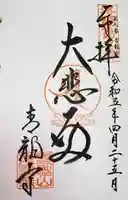 奉拝
令和五年四月二十三日
大悲殿
青龍寺